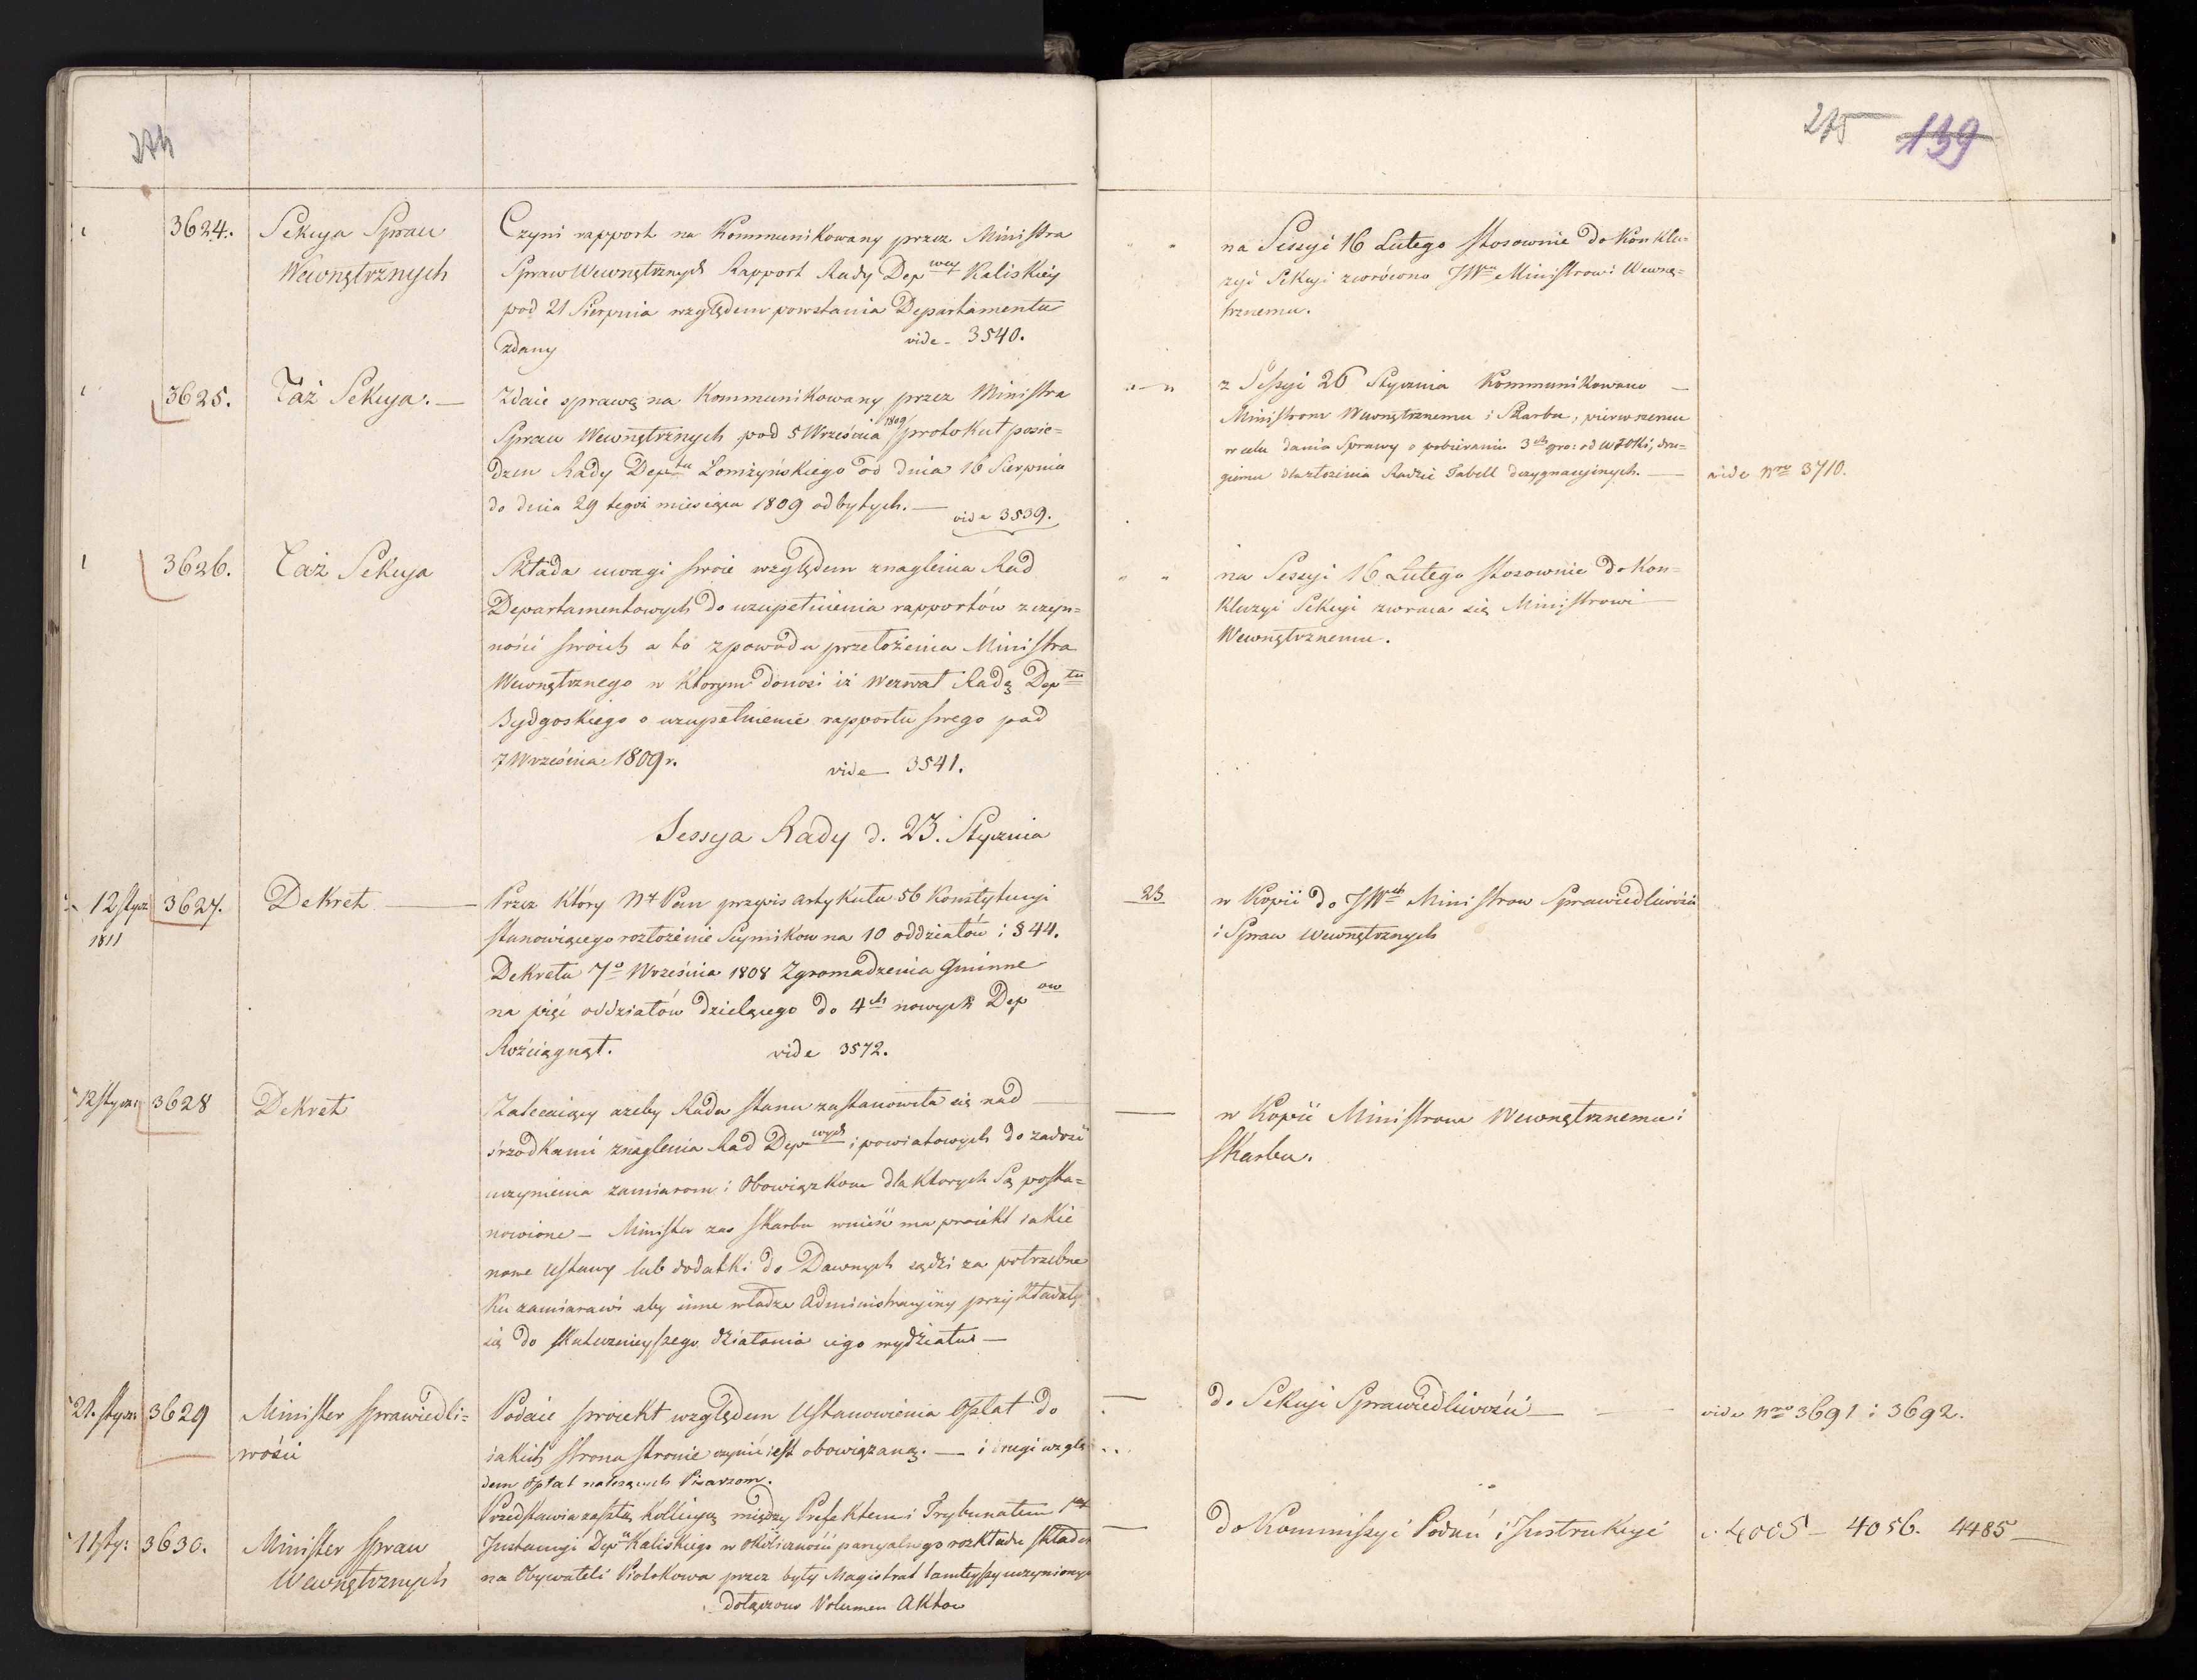 274
3624. Sekcya Spraw
Wewnętrznych
Czyni rapport na Kommunikowany przez Ministra
Spraw Wewnętrznych Rapport Rady Dep wey Kaliskiey
pod 21 Sierpnia względem powstania Departamentu
zdany vide - 3540.
3625. Taż Sekcya. —
Zdaie sprawę na Kommunikowany przez Ministra
Spraw Wewnętrznych pod 5 Września 1809 protokuł posie=
dzeń Rady Dep tu Łomżyńskiego od dnia 16 Sierpnia
do dnia 29 tegoż miesiąca 1809 odbytych. —
vide 3539.
3626. Taż Sekcya
Składa uwagi swoie względem znaglenia Rad
Departamentowych do uzupełnienia rapportów z czyn=
ności swoich a to z powodu przełożenia Ministra
Wewnętrznego w którym donosi iż wezwał Radę Dep tu
Bydgoskiego o uzupełnienie rapportu swego pod
7 Września 1809 r. vide — 3541.
Sessya Rady d. 23. Stycznia
12 stycz 3627. Dekret —
1811
Przez który Nꝫ Pan przepis artykułu 56 Konstytucyi
stanowiącego rozłożenie Seymikow na 10 oddziałów i § 44.
Dekretu 7o Września 1808 Zgromadzenia Gminne
na pięć oddziałów dzielącego do 4ch nowych Dep ow
Rozciągnął. vide 3572.
12 stycz: 3628 Dekret
Zalecaiący ażeby Rada Stanu zastanowiła się nad —
śrzodkami znaglenia Rad Dep wych i powiatowych do zadość
uczynienia zamiarom i Obowiązkom dla których Są posta=
nowione — Minister zaś Skarbu wnieść ma proiekt iakie
nowe Ustawy lub dodatki do Dawnych sądzi za potrzebne
Ku zamiarowi aby inne władze Administracyiny przykładały
się do skutecznieyszego działania iego wydziału —
21. stycz: 3629 Minister Sprawiedli=
wości
Podaie proiekt względem Ustanowienia Opłat do
iakich strona stronie czynić iest obowiązaną. — i drugi wzglę
dem Opłat należących Pisarzom.
11 sty: 3630. Minister Spraw
Wewnętrznych
Przedstawia zaszłą Kollizyą między Prefektem i Trybunałem 1ey
Instancyi Dep Kaliskiego w okoliczności parcyalnego rozkładu składek
na Obywateli Piotrkowa przez były Magistrat tamteyszy uczynionego
dołączono Volumen Aktow
275 139
na Sessyi 16 Lutego stosownie do Konklu=
zyi Sekcyi zwrócono JWu Ministrowi Wewnę=
trznemu.
z Sessyi 26 Stycznia Kommunikowano —
Ministrom Wewnętrznemu i Skarbu, pierwszemu
w celu dania Sprawy o pobieraniu 3ch gro: od wzoki, dru=
giemu dla złożenia Radzie Tabell dezygnacyinych. — vide Nro 3710.
na Sessyi 16 Lutego stosownie do Kon=
kluzyi Sekcyi zwraca się Ministrowi
Wewnętrznemu.
23 w Kopii do JWch Ministrow Sprawiedliwości
i Spraw Wewnętrznych
— w Kopii Ministrom Wewnętrznemu i
Skarbu.
— do Sekcyi Sprawiedliwości — vide Nro 3691 i 3692.
— do Kommissyi Podań i Instrukcyi v. 4005 — 4056. 4485 —